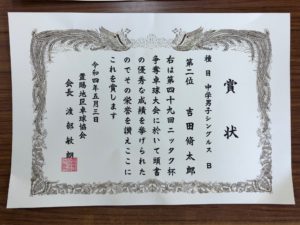 賞状
種目 中学男子シングルス B
第二位 吉田脩太郎
右は第四十九回ニッタク杯
争奪卓球大会に於いて頭書
の優秀な成績を挙げられた
のでその栄誉を讃えここに
これを賞します
令和四年五月三日
置賜地区卓球協会
会長 渡部敏